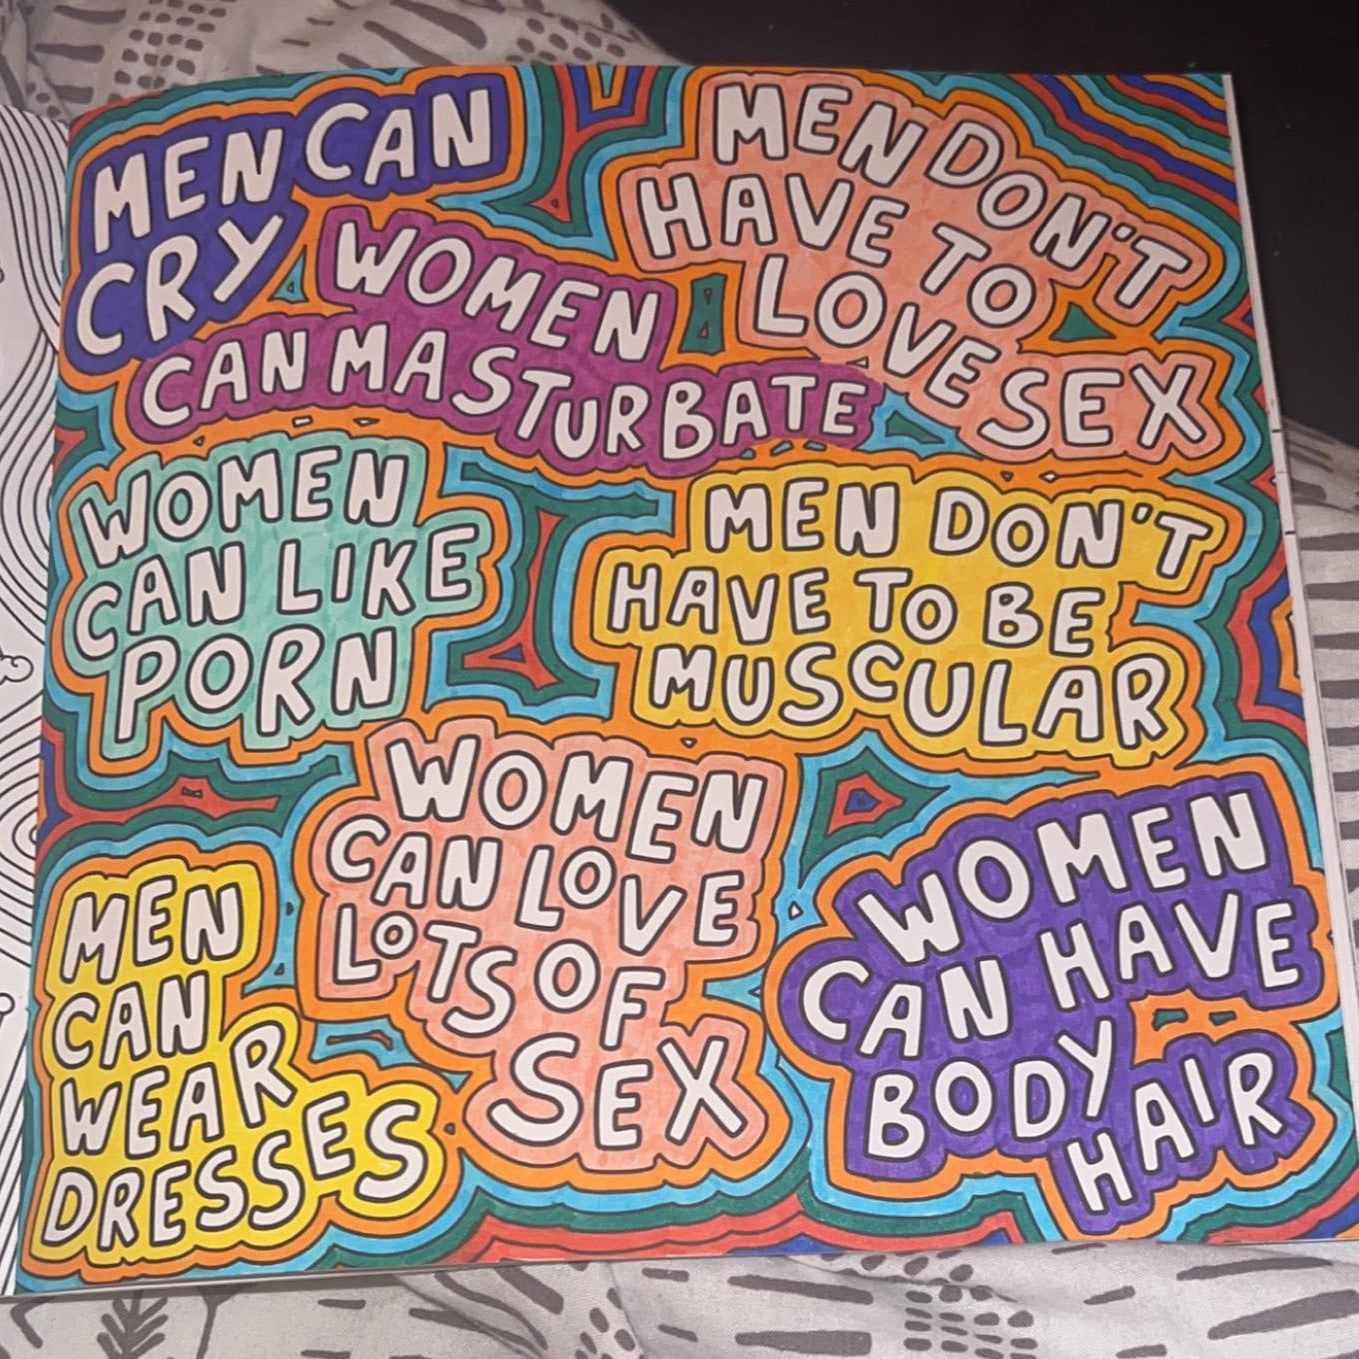 MEN CAN
CRY
MEN DON'T
HAVE TO
LOVE SEX
WOMEN
CAN MASTURBATE
WOMEN
CAN LIKE
PORN
MEN DON'T
HAVE TO BE
MUSCULAR
WOMEN
CAN LOVE
LOTS OF
SEX
MEN
CAN
WEAR
DRESSES
WOMEN
CAN HAVE
BODY
HAIR